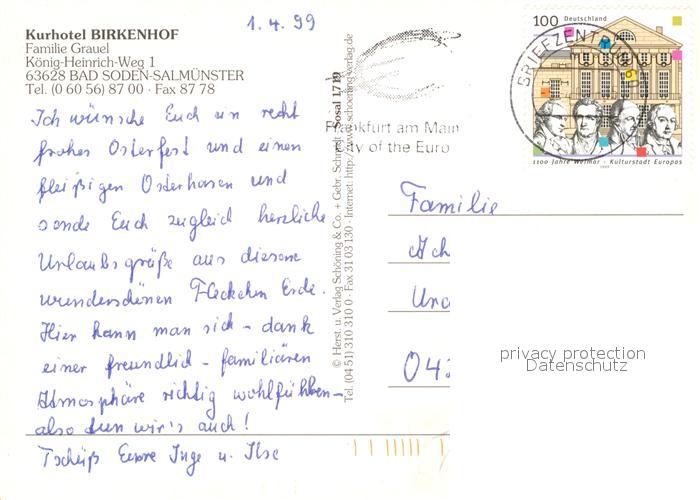 1.4.99
Kurhotel BIRKENHOF
Familie Grauel
König-Heinrich-Weg 1
63628 BAD SODEN-SALMÜNSTER
Tel. (0 60 56) 87 00 · Fax 87 78
Ich wünsche Euch ein recht
frohes Osterfest und einen
fleißigen Osterhasen und
sende Euch zugleich herzliche
Urlaubsgrüße aus diesem
wunderschönen Fleckchen Erde.
Hier kann man sich - dank
einer freundlich - familiären
Atmosphäre richtig wohlfühlen -
also tun wir's auch!
Tschüß Eure Inge u. Ilse
© Herst. u. Verlag Schöning & Co. + Gebr. Schmidt Sosal 1,719
Tel. (04 51) 310 310 0 · Fax 31 03 130 · Internet: http://www.schoening-verlag.de
Frankfurt am Main
City of the Euro
BRIEFZENTRUM
100 Deutschland
1100 Jahre Weimar · Kulturstadt Europas
1999
Familie
Ach
Und
04
privacy protection
Datenschutz